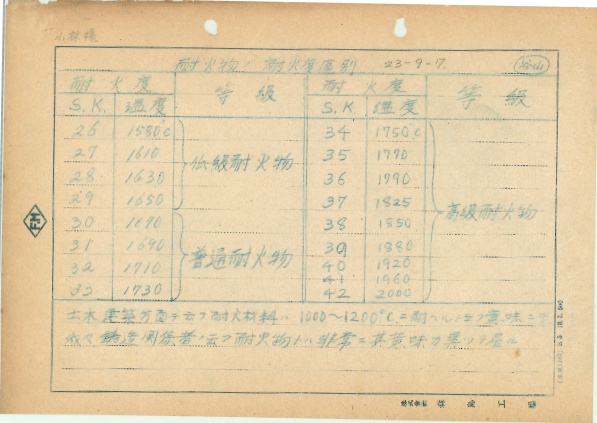 小林様
耐火物ノ耐火度区別 23-9-7.
耐火度 等級 耐火度 等級
S.K. 温度 S.K. 温度
26 1580°C 34 1750°C
27 1610 35 1770
28 1630 低級耐火物 36 1790
29 1650 37 1825
30 1670 38 1850 高級耐火物
31 1690 39 1880
32 1710 普通耐火物 40 1920
33 1730 41 1960
42 2000
土木建築方面デ云フ耐火材料ハ 1000〜1200°C ニ耐ヘルト云フ意味ニテ
我々鋳造関係者ノ云フ耐火物トハ非常ニ其意味が異ッテ居ル
F.M
株式会社 工